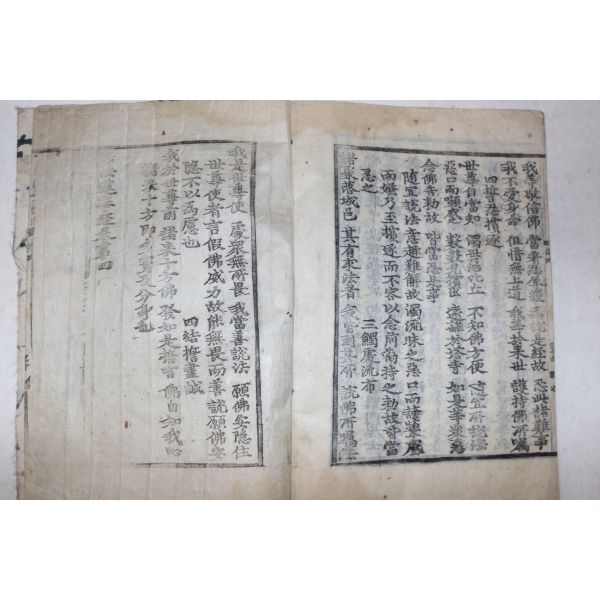 我等敬信佛 當著忍辱鎧 為說是經故 忍此諸難事
我不愛身命 但惜無上道 我等於來世 護持佛所囑
四誓忍擯逐
世尊自當知 濁世惡比丘 不知佛方便 隨宜所說法
惡口而顰蹙 數數見擯出 遠離於塔寺 如是等眾惡
念佛告勅故 皆當忍是事
隨宜說法意趣難解故濁流昧之惡口而顰蹙
而嫉乃至擯逐而不容以念前勸持之勅故皆當
忍之
三觸處流布
諸聚落城邑 其有求法者 我皆到其所 說佛所囑法
我是世尊使 處眾無所畏 我當善說法 願佛安隱住
世尊使者言假佛威力故能無畏而善說願佛安
隱不以為慮也
四結誓盡誠
我於世尊前 諸來十方佛 發如是誓言 佛自知我心
諸來十方即多寶及分身也